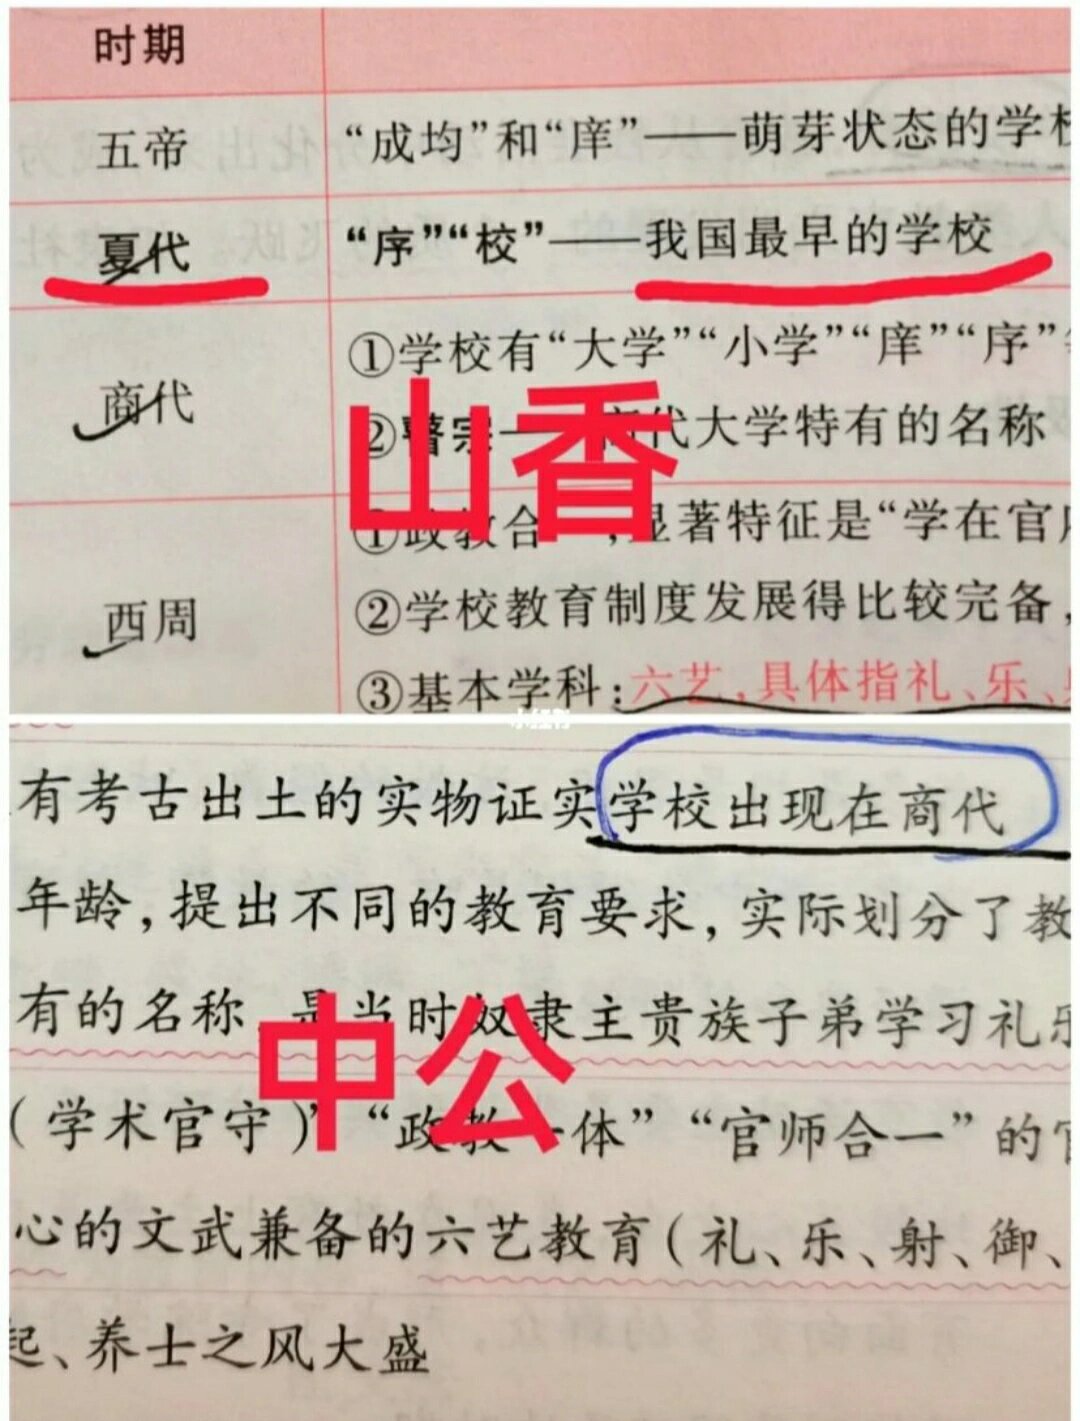 时期
五帝
“成均”和“庠”——萌芽状态的学校
夏代
“序”“校”——我国最早的学校
商代
①学校有“大学”“小学”“庠”“序”
②瞽宗——商代大学特有的名称
山香
西周
①政教合一,显著特征是“学在官
②学校教育制度发展得比较完备,
③基本学科:六艺,具体指礼、乐、
小红书
有考古出土的实物证实学校出现在商代
年龄,提出不同的教育要求,实际划分了教
有的名称,是当时奴隶主贵族子弟学习礼乐
中公
(学术官守)”“政教一体”“官师合一”的官
心的文武兼备的六艺教育(礼、乐、射、御、
起、养士之风大盛